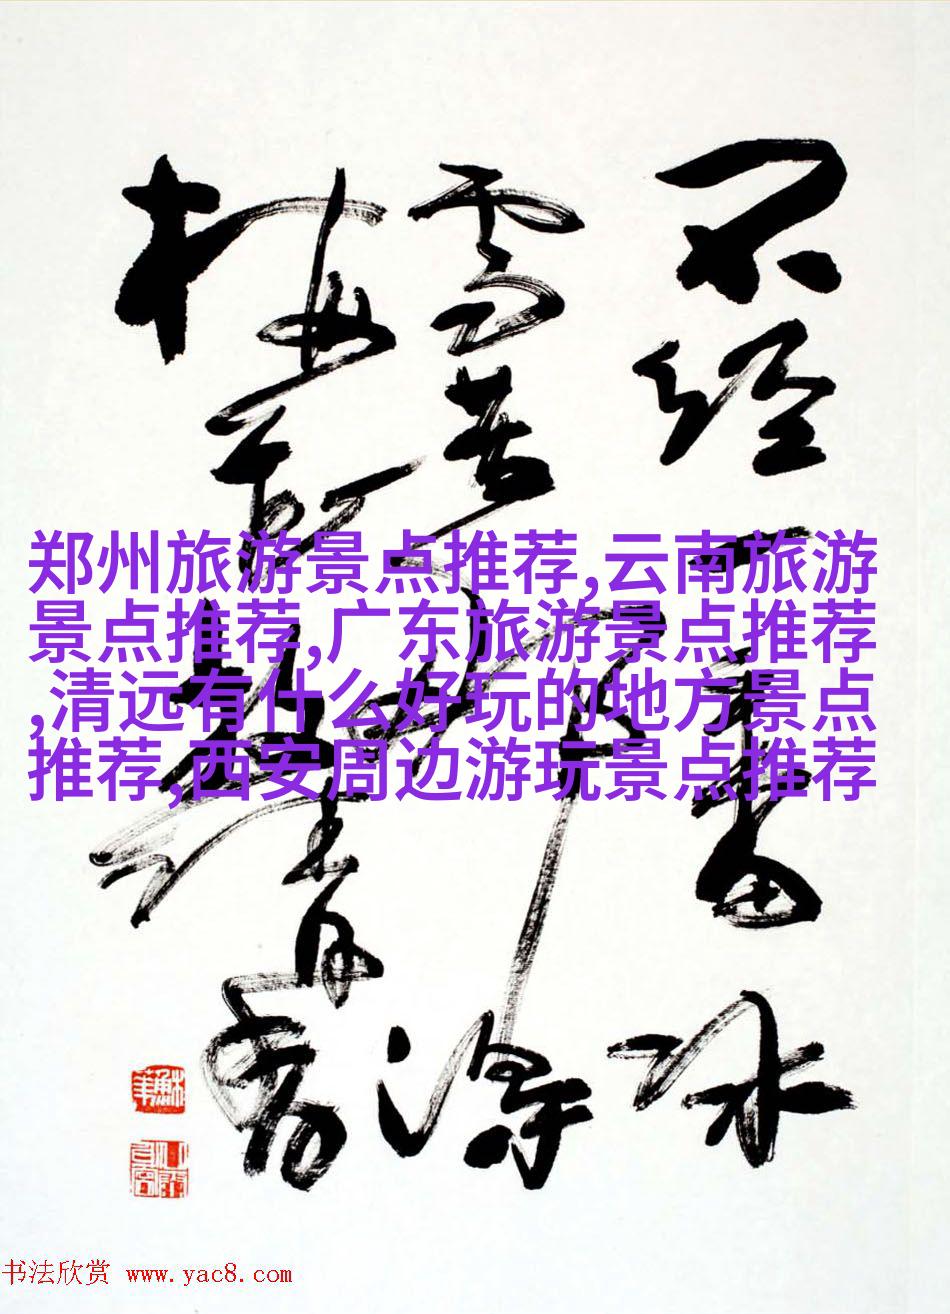 不经一番冰
雪苦得
梅放清香
郑州旅游景点推荐,云南旅游
景点推荐,广东旅游景点推荐
,清远有什么好玩的地方景点
推荐,西安周边游玩景点推荐
书法欣赏 www.yac8.com